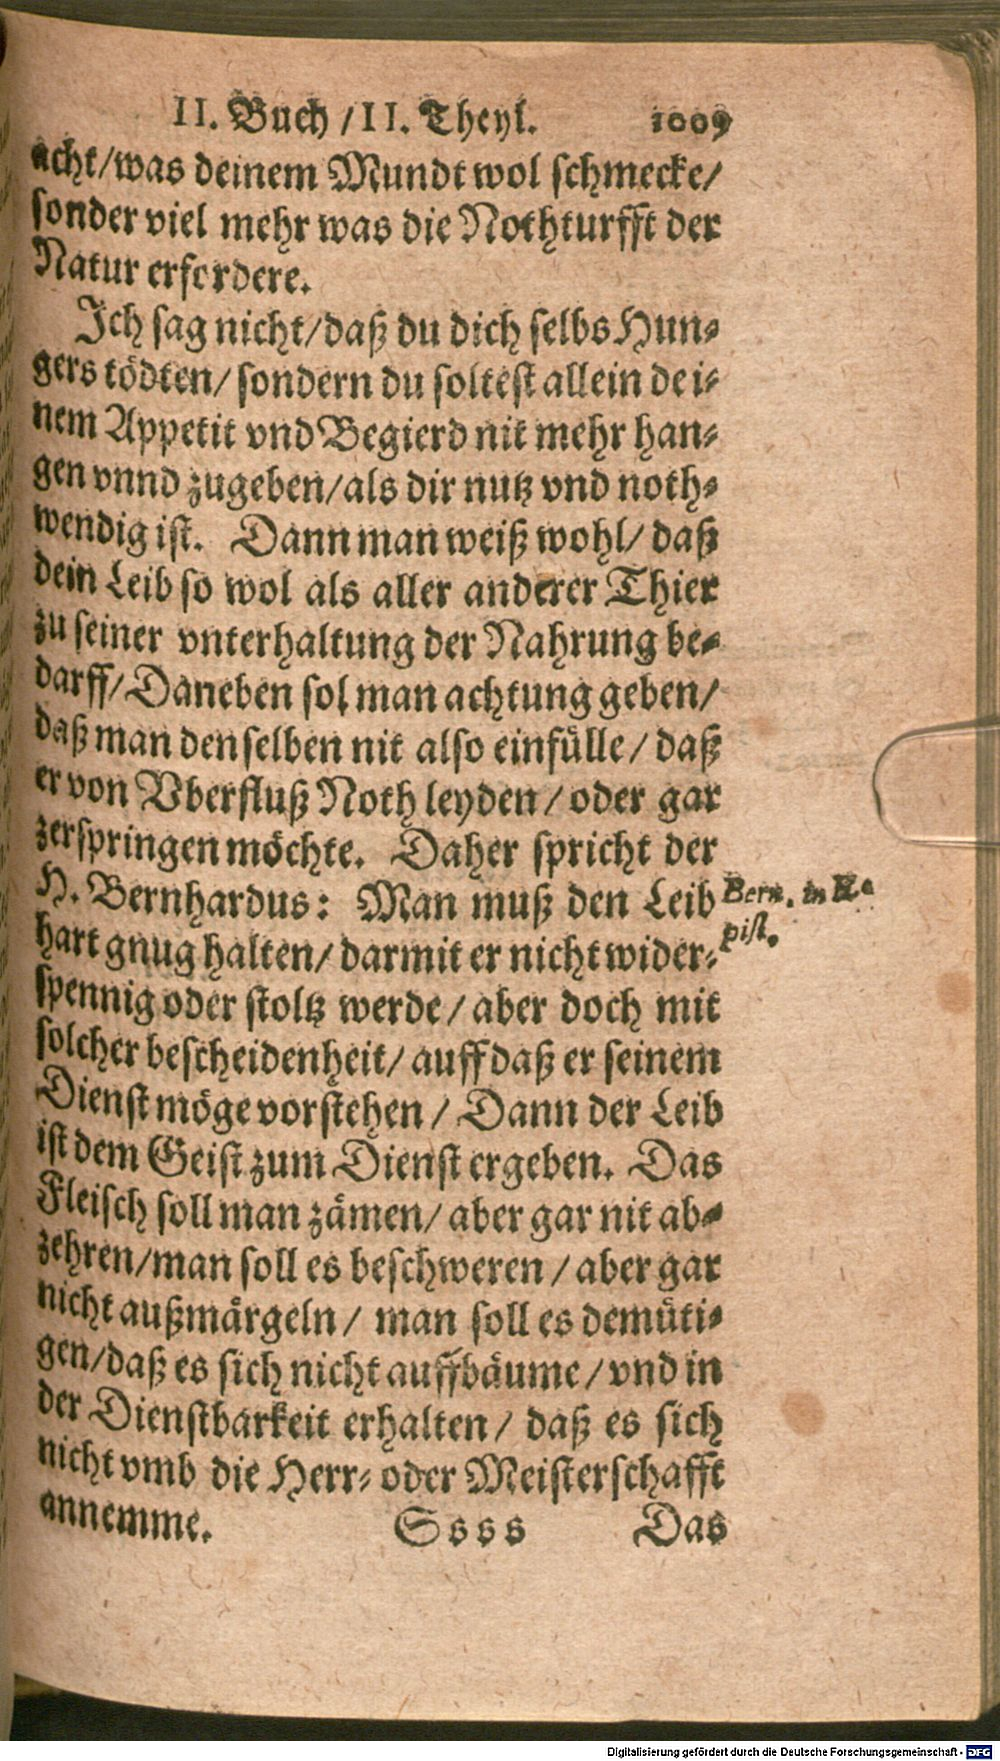 II. Buch / II. Theyl. 1009
acht/was deinem Mundt wol schmecke/
sonder viel mehr was die Nothturfft der
Natur erfordere.
Ich sag nicht/daß du dich selbs Hun-
gers tödten/ sondern du soltest allein dei-
nem Appetit vnd Begierd nit mehr han-
gen vnnd zugeben/als dir nutz vnd noth-
wendig ist. Dann man weiß wohl/ daß
dein Leib so wol als aller anderer Thier
zu seiner vnterhaltung der Nahrung be-
darff/ Daneben sol man achtung geben/
daß man denselben nit also einfülle/ daß
er von Vberfluß Noth leyden/ oder gar
zerspringen möchte. Daher spricht der
H. Bernhardus: Man muß den Leib
Bern. in E-
pist.
hart gnug halten/ darmit er nicht wider-
spennig oder stoltz werde/ aber doch mit
solcher bescheidenheit/ auff daß er seinem
Dienst möge vorstehen/ Dann der Leib
ist dem Geist zum Dienst ergeben. Das
Fleisch soll man zämen/ aber gar nit ab-
zehren/man soll es beschweren/ aber gar
nicht außmärgeln/ man soll es demüti-
gen/daß es sich nicht auffbäume/ vnd in
der Dienstbarkeit erhalten/ daß es sich
nicht vmb die Herr- oder Meisterschafft
annemme. Ssss Das
Digitalisierung gefördert durch die Deutsche Forschungsgemeinschaft - DFG